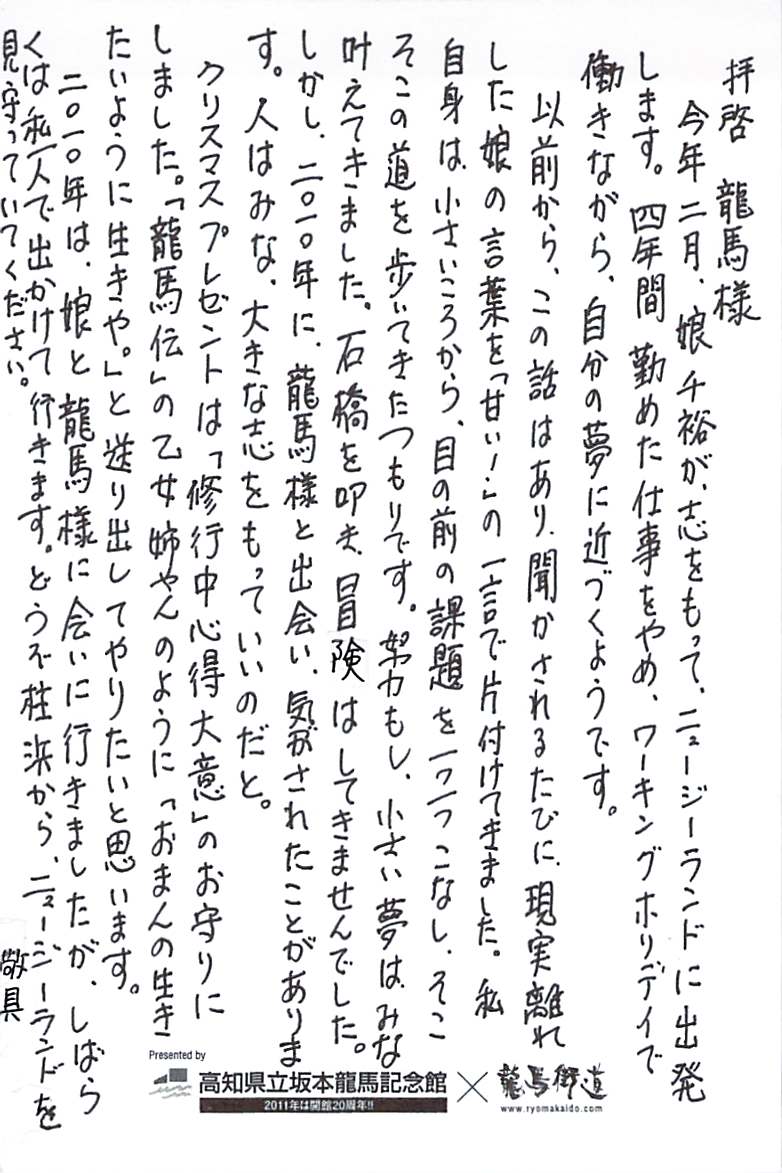 拝啓　龍馬様
今年二月、娘千裕が、志をもって、ニュージーランドに出発
します。四年間勤めた仕事をやめ、ワーキングホリデイで
働きながら、自分の夢に近づくようです。
以前から、この話はあり、聞かされるたびに、現実離れ
した娘の言葉を「甘い！」の一言で片付けてきました。私
自身は、小さいころから、目の前の課題を一つ一つこなし、そこ
そこの道を歩いてきたつもりです。努力もし、小さい夢は、みな
叶えてきました。石橋を叩き、冒険はしてきませんでした。
しかし、二〇一〇年に、龍馬様と出会い、気がされたことがありま
す。人はみな、大きな志をもっていいのだと。
クリスマスプレゼントは「修行中心得大意」のお守りに
しました。「龍馬伝」の乙女姉やんのように「おまんの生き
たいように生きや。」と送り出してやりたいと思います。
二〇一〇年は、娘と龍馬様に会いに行きましたが、しばら
くは私一人で出かけて行きます。どうぞ桂浜から、ニュージーランドを
見守っていてください。
敬具
Presented by
高知県立坂本龍馬記念館×龍馬街道
2011年は開館20周年!!
www.ryomakaido.com